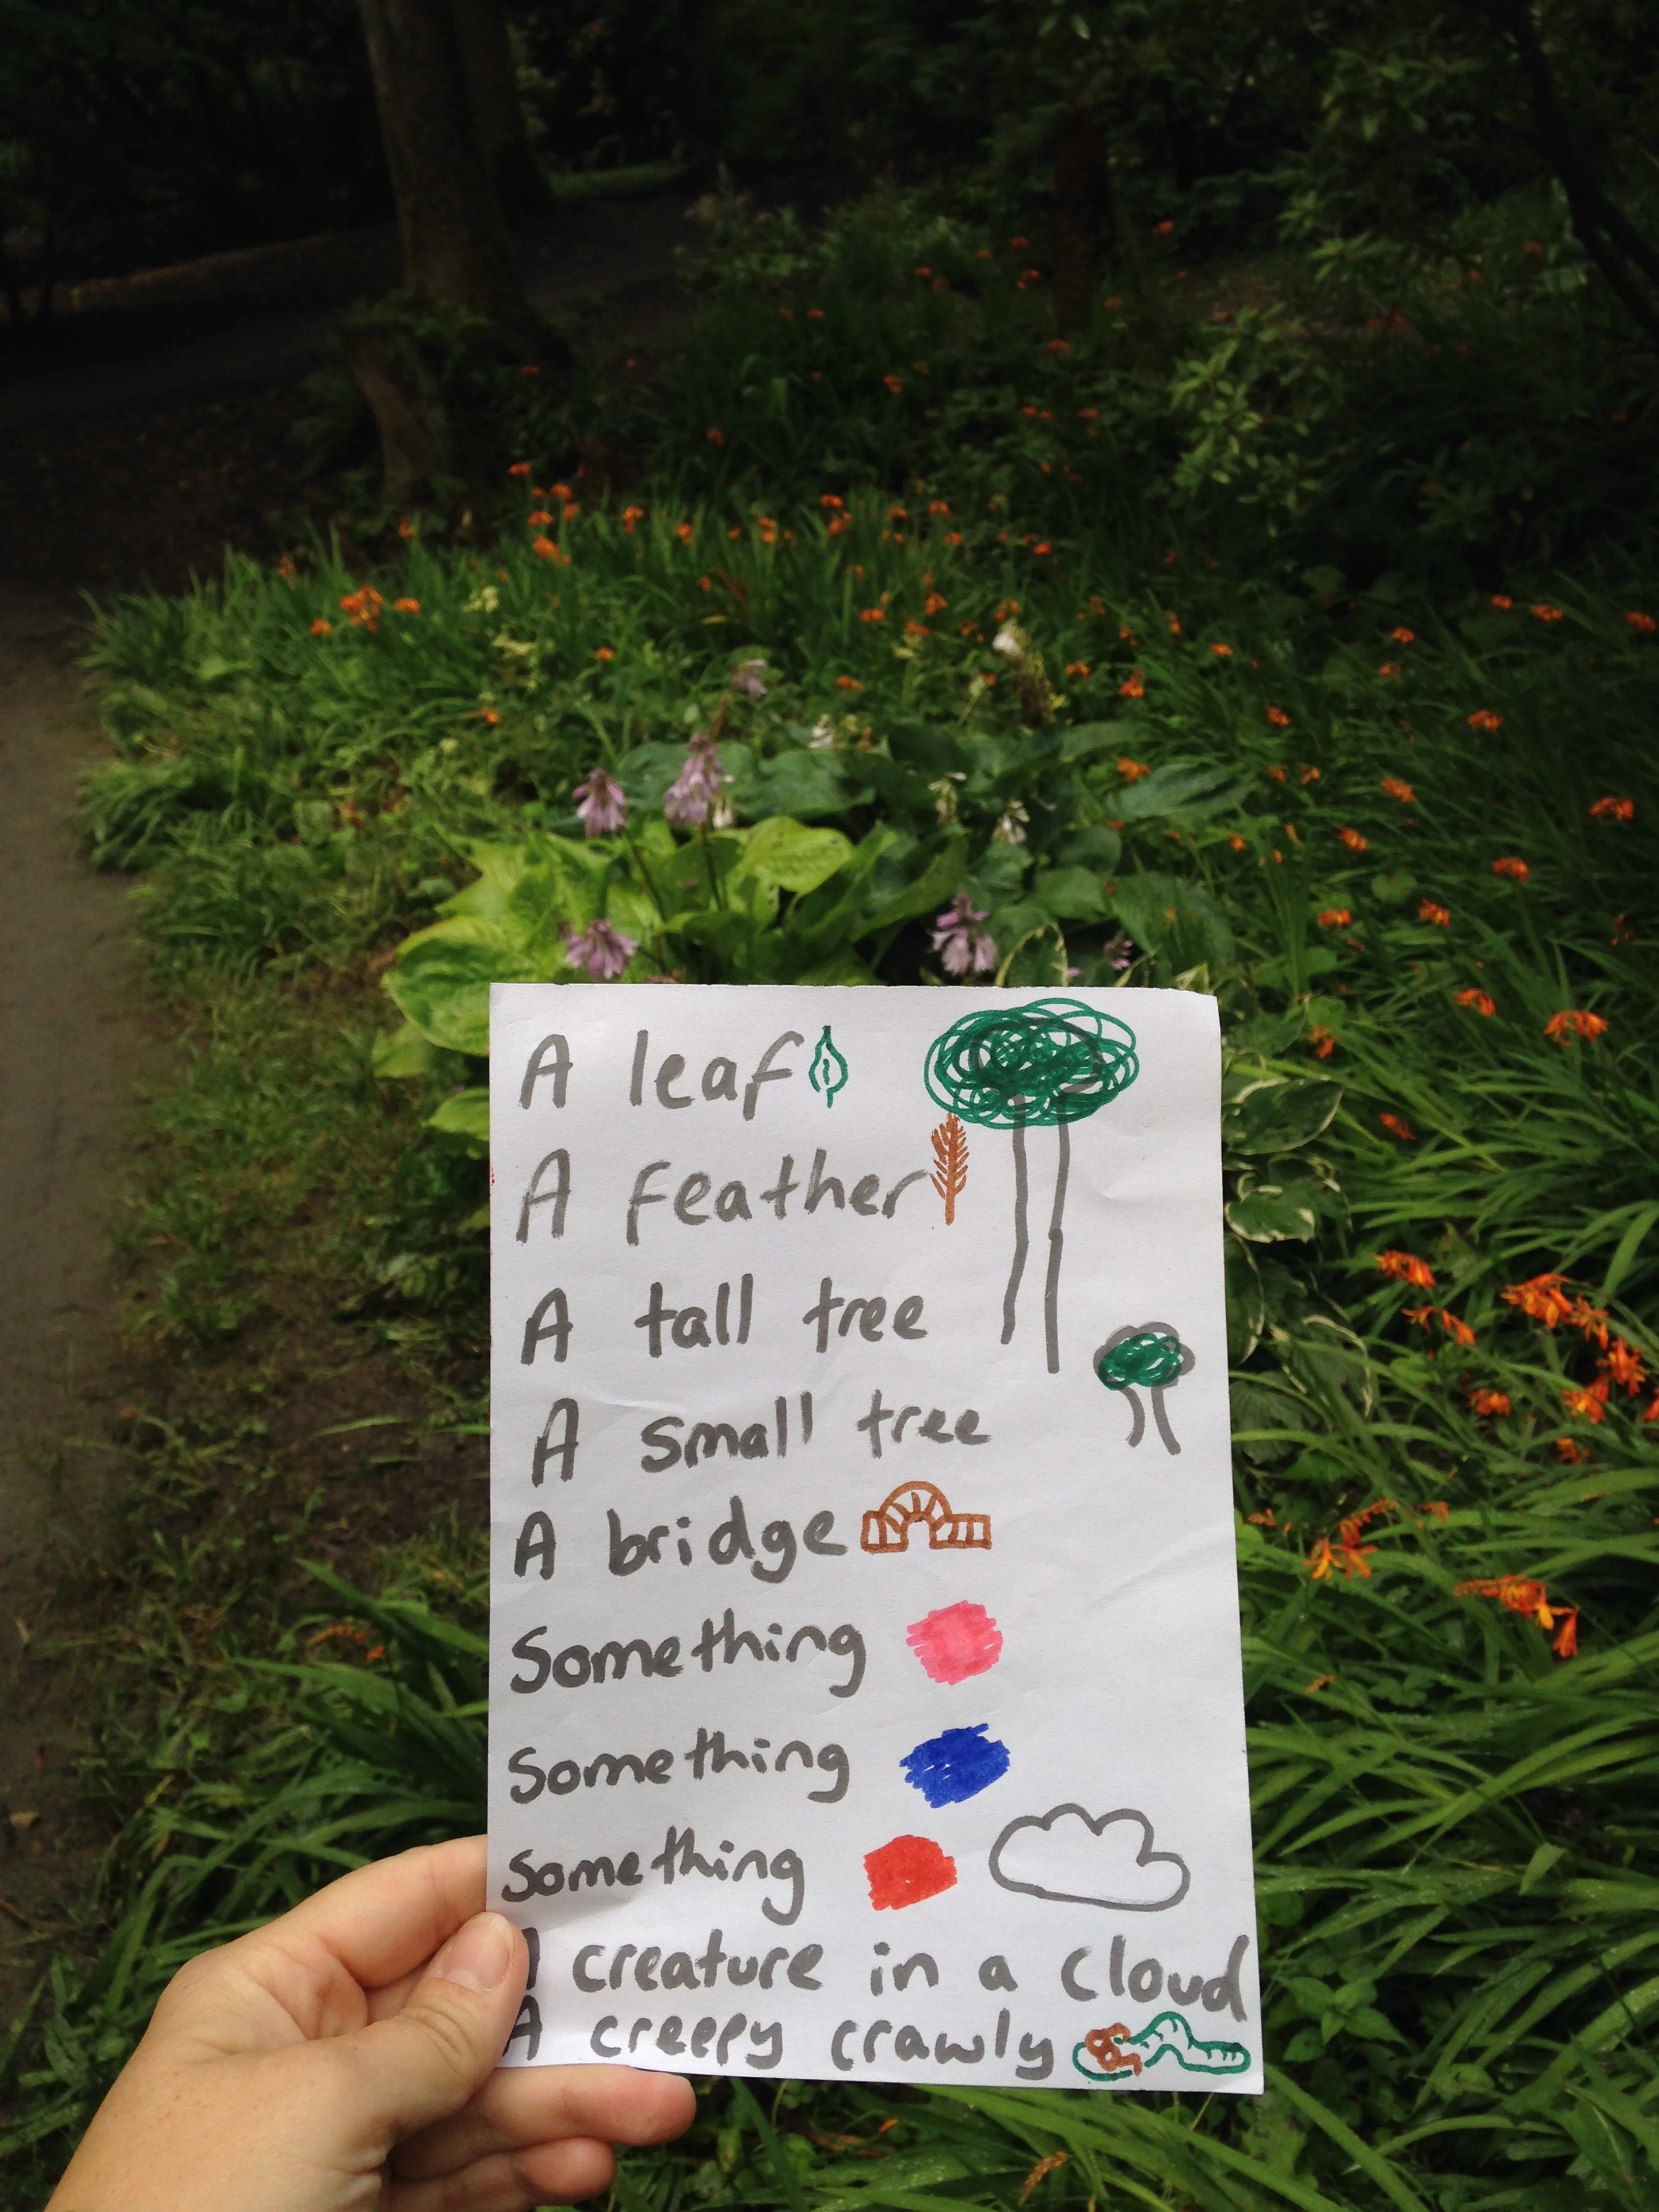 A leaf
A feather
A tall tree
A small tree
A bridge
Something
Something
Something
A creature in a cloud
A creepy crawly